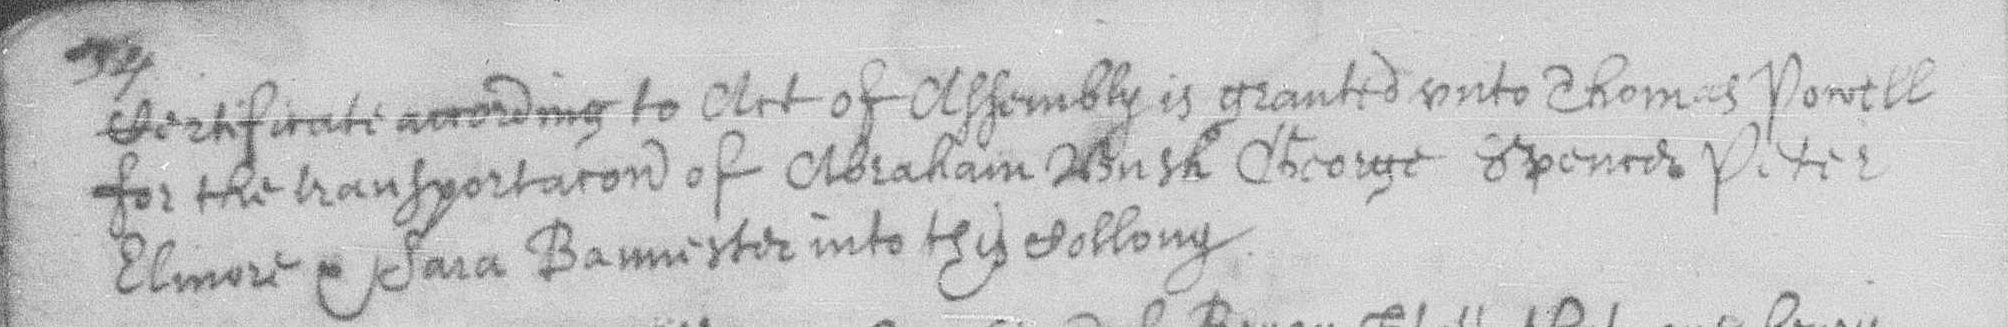 Certificate according to Act of Assembly is granted unto Thomas Powell
for the transportacon of Abraham Bush George Spencer Peter
Elmore & Sara Bannister into this Collony